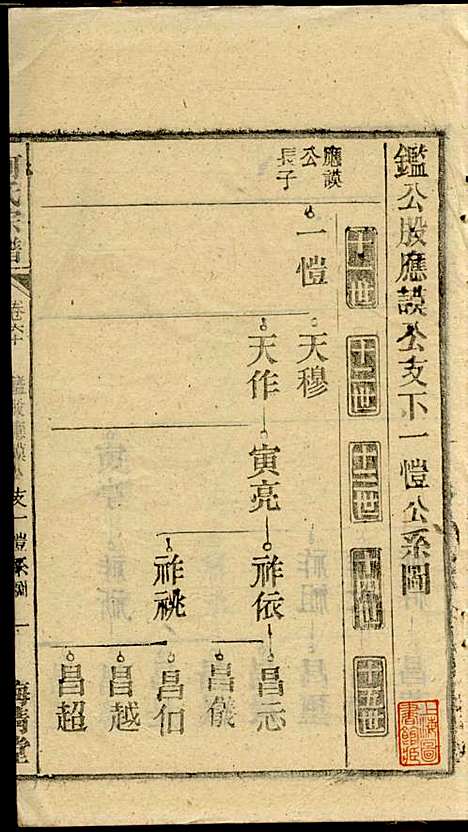 鑑公股應謨公支下一愷公系圖
十一世
十二世
十三世
十四世
十五世
應謨
公
長子
一愷
天穆
天作
寅亮
祚依
祚祧
昌示
昌儀
昌佰
昌越
昌超
氏宗譜
卷六十
支一愷系圖
一
上海圖
書館藏